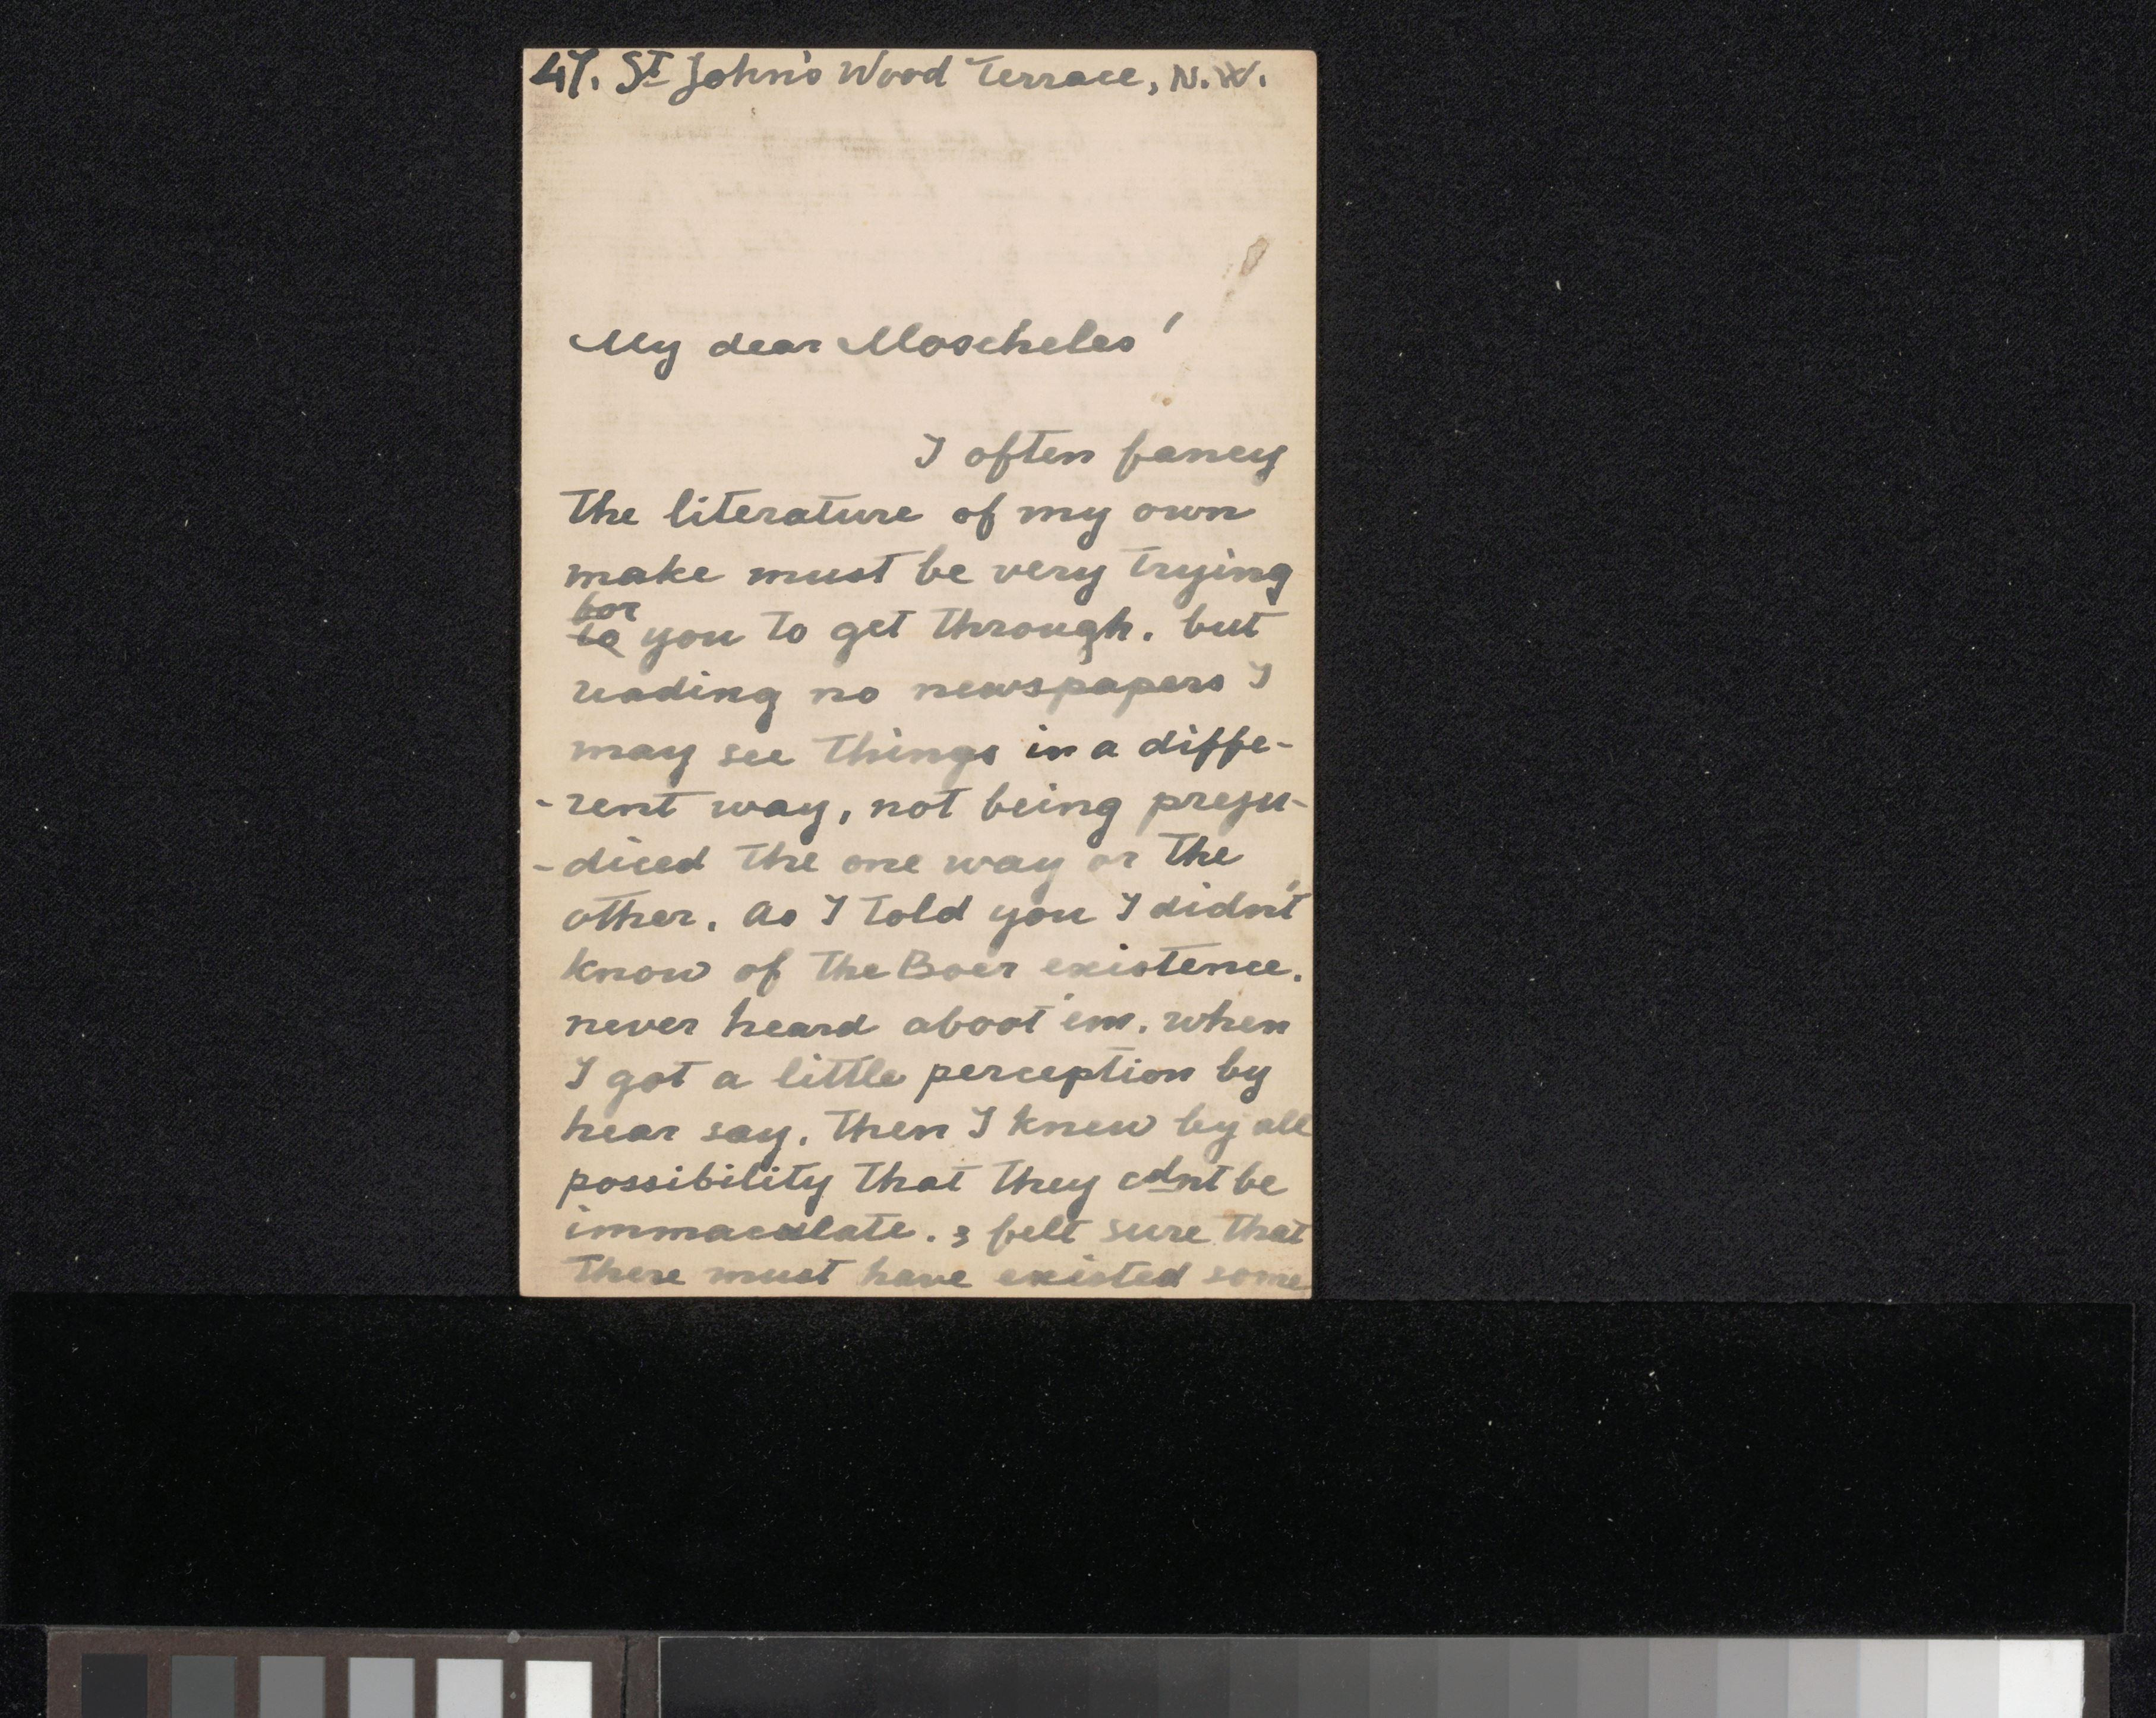 47. St John's Wood Terrace, N.W.
My dear Moscheles'
I often fancy
the literature of my own
make must be very trying
for
to you to get through. but
reading no newspapers I
may see things in a diffe-
-rent way, not being preju-
-diced the one way or the
other. As I told you I didn't
know of the Boer existence.
never heard aboot 'em. when
I got a little perception by
hear say. then I knew by all
possibility that they cdnt be
immaculate. & felt sure that
there must have existed some